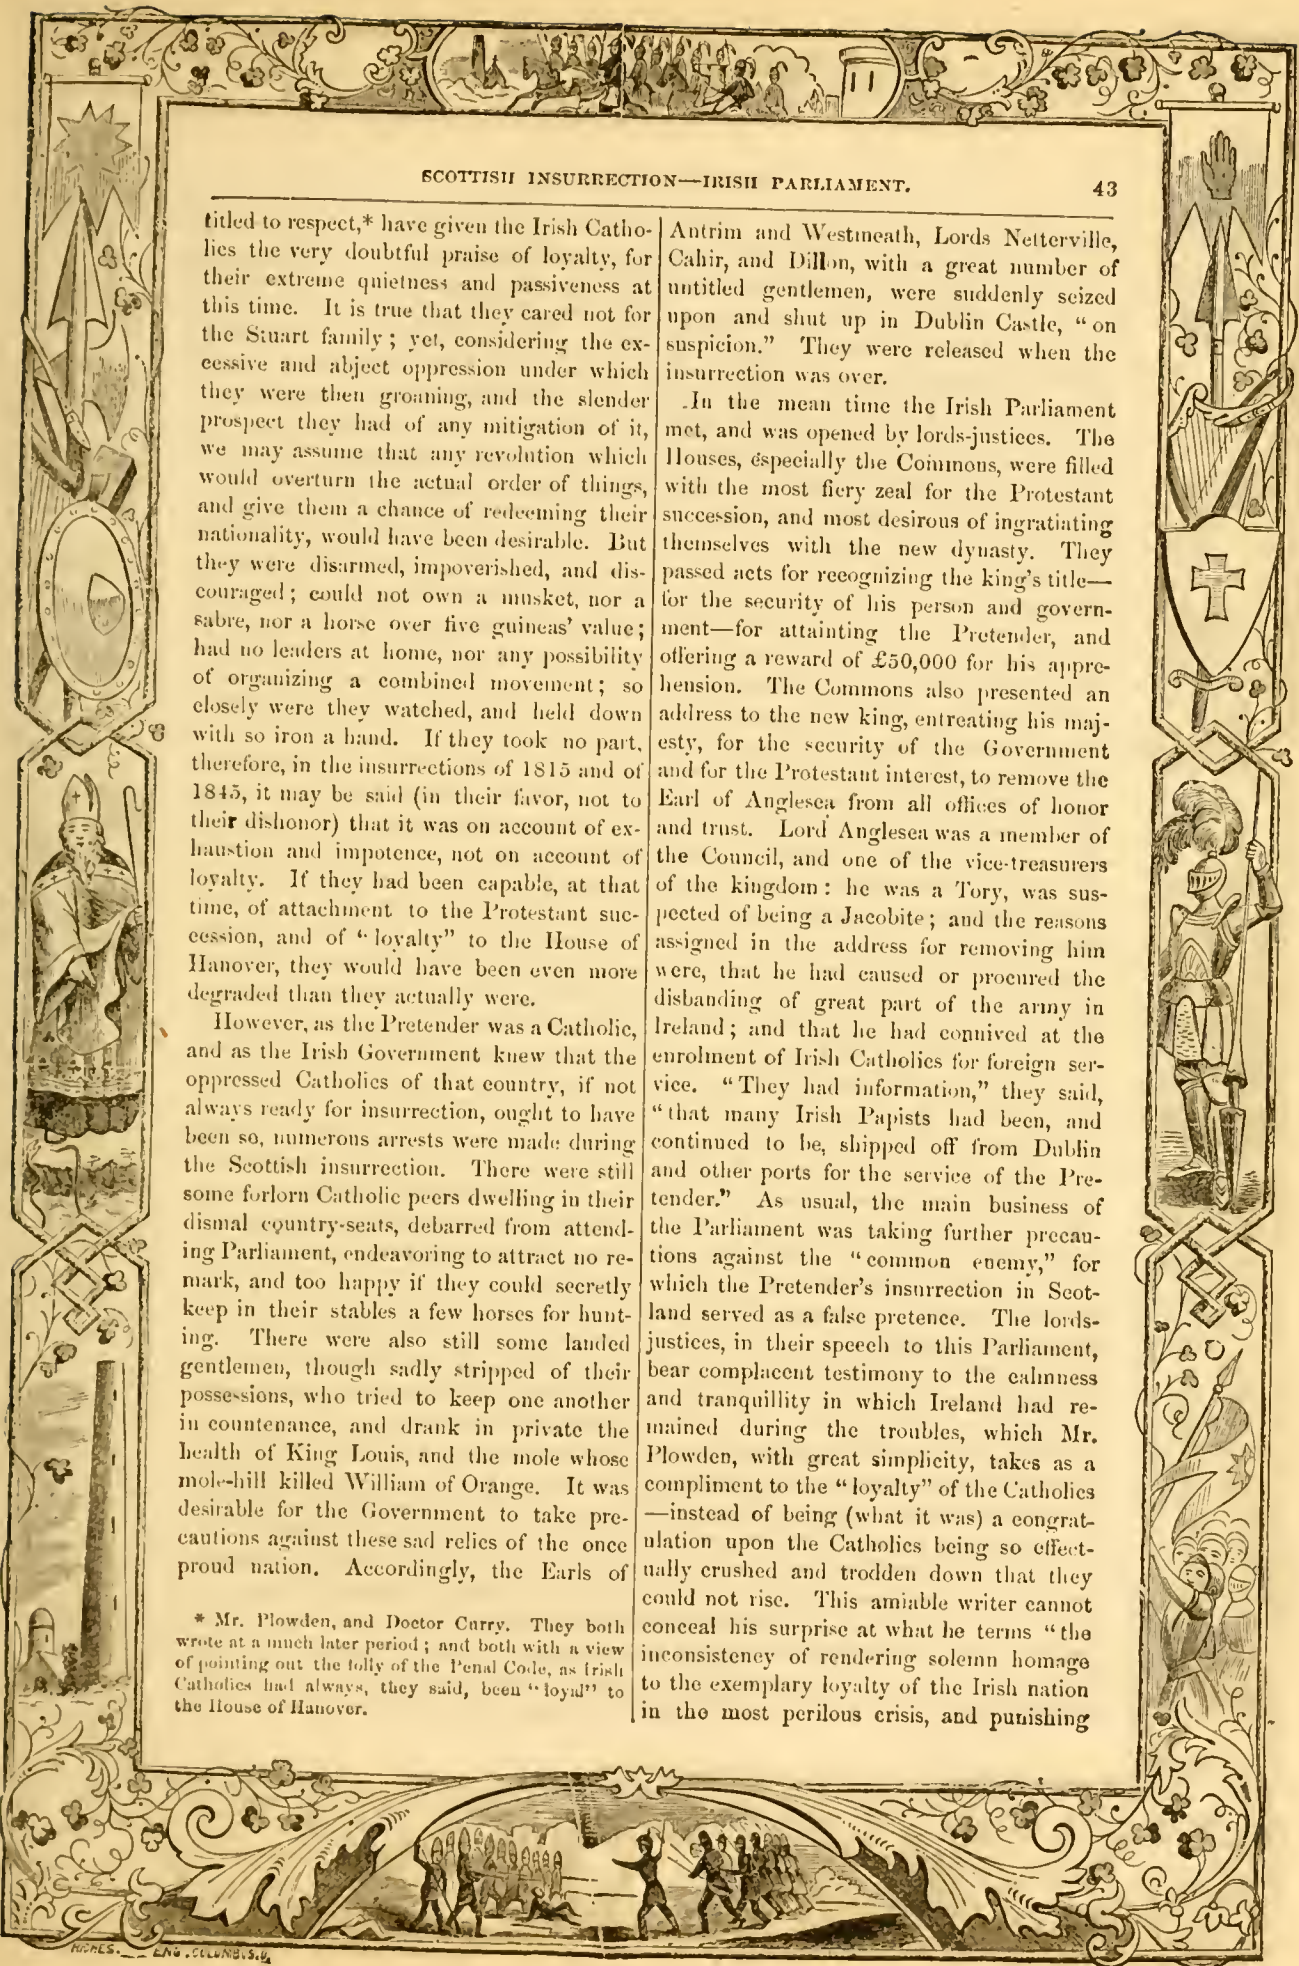 SCOTTISH INSURRECTION—IRISH PARLIAMENT.
43
titled to respect,* have given the Irish Catho-
lics the very doubtful praise of loyalty, for
their extreme quietness and passiveness at
this time. It is true that they cared not for
the Stuart family; yet, considering the ex-
cessive and abject oppression under which
they were then groaning, and the slender
prospect they had of any mitigation of it,
we may assume that any revolution which
would overturn the actual order of things,
and give them a chance of redeeming their
nationality, would have been desirable. But
they were disarmed, impoverished, and dis-
couraged; could not own a musket, nor a
sabre, nor a horse over five guineas' value;
had no leaders at home, nor any possibility
of organizing a combined movement; so
closely were they watched, and held down
with so iron a hand. If they took no part,
therefore, in the insurrections of 1815 and of
1845, it may be said (in their favor, not to
their dishonor) that it was on account of ex-
haustion and impotence, not on account of
loyalty. If they had been capable, at that
time, of attachment to the Protestant suc-
cession, and of "loyalty" to the House of
Hanover, they would have been even more
degraded than they actually were.
However, as the Pretender was a Catholic,
and as the Irish Government knew that the
oppressed Catholics of that country, if not
always ready for insurrection, ought to have
been so, numerous arrests were made during
the Scottish insurrection. There were still
some forlorn Catholic peers dwelling in their
dismal country-seats, debarred from attend-
ing Parliament, endeavoring to attract no re-
mark, and too happy if they could secretly
keep in their stables a few horses for hunt-
ing. There were also still some landed
gentlemen, though sadly stripped of their
possessions, who tried to keep one another
in countenance, and drank in private the
health of King Louis, and the mole whose
mole-hill killed William of Orange. It was
desirable for the Government to take pre-
cautions against these sad relics of the once
proud nation. Accordingly, the Earls of
* Mr. Plowden, and Doctor Curry. They both
wrote at a much later period; and both with a view
of pointing out the folly of the Penal Code, as Irish
Catholics had always, they said, been "loyal" to
the House of Hanover.
Antrim and Westmeath, Lords Netterville,
Cahir, and Dillon, with a great number of
untitled gentlemen, were suddenly seized
upon and shut up in Dublin Castle, "on
suspicion." They were released when the
insurrection was over.
In the mean time the Irish Parliament
met, and was opened by lords-justices. The
Houses, especially the Commons, were filled
with the most fiery zeal for the Protestant
succession, and most desirous of ingratiating
themselves with the new dynasty. They
passed acts for recognizing the king's title—
for the security of his person and govern-
ment—for attainting the Pretender, and
offering a reward of £50,000 for his appre-
hension. The Commons also presented an
address to the new king, entreating his maj-
esty, for the security of the Government
and for the Protestant interest, to remove the
Earl of Anglesea from all offices of honor
and trust. Lord Anglesea was a member of
the Council, and one of the vice-treasurers
of the kingdom: he was a Tory, was sus-
pected of being a Jacobite; and the reasons
assigned in the address for removing him
were, that he had caused or procured the
disbanding of great part of the army in
Ireland; and that he had connived at the
enrolment of Irish Catholics for foreign ser-
vice. "They had information," they said,
"that many Irish Papists had been, and
continued to be, shipped off from Dublin
and other ports for the service of the Pre-
tender." As usual, the main business of
the Parliament was taking further precau-
tions against the "common enemy," for
which the Pretender's insurrection in Scot-
land served as a false pretence. The lords-
justices, in their speech to this Parliament,
bear complacent testimony to the calmness
and tranquillity in which Ireland had re-
mained during the troubles, which Mr.
Plowden, with great simplicity, takes as a
compliment to the "loyalty" of the Catholics
—instead of being (what it was) a congrat-
ulation upon the Catholics being so effect-
ually crushed and trodden down that they
could not rise. This amiable writer cannot
conceal his surprise at what he terms "the
inconsistency of rendering solemn homage
to the exemplary loyalty of the Irish nation
in the most perilous crisis, and punishing
ENG. COLUMBUS. O.